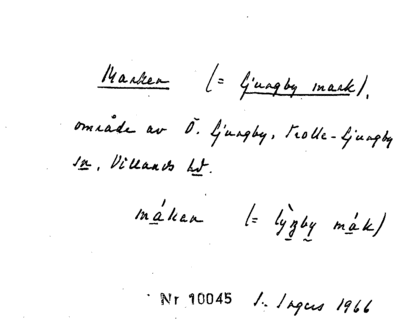 Marken (= Ljungby mark),
område av Ö. Ljungby, Trolle-Ljungby
sn, Villands hd.
mákan (= lỳŋby mák)
Nr 10045 S. Ingers 1966